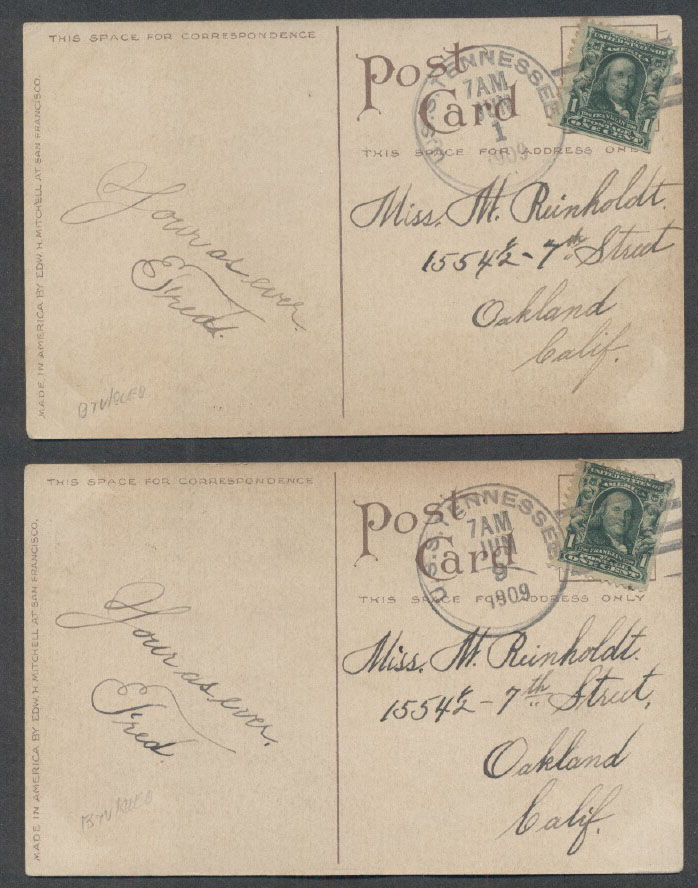 THIS SPACE FOR CORRESPONDENCE
MADE IN AMERICA BY EDW. H. MITCHELL AT SAN FRANCISCO.
Your as ever.
Fred.
Post
Card
THIS SPACE FOR ADDRESS ONLY
U.S.S. TENNESSEE
7AM
JUN
1
1909
UNITED STATES OF
AMERICA
1
1
POSTAGE
ONE CENT
Miss. M. Reinholdt.
1554½ - 7th Street
Oakland
Calif.
THIS SPACE FOR CORRESPONDENCE
MADE IN AMERICA BY EDW. H. MITCHELL AT SAN FRANCISCO.
Your as ever.
Fred.
Post
Card
THIS SPACE FOR ADDRESS ONLY
U.S.S. TENNESSEE
7AM
JUN
9
1909
UNITED STATES OF
AMERICA
1
FRANKLIN
1
ONE CENT
Miss. M. Reinholdt.
1554½ - 7th Street,
Oakland
Calif.